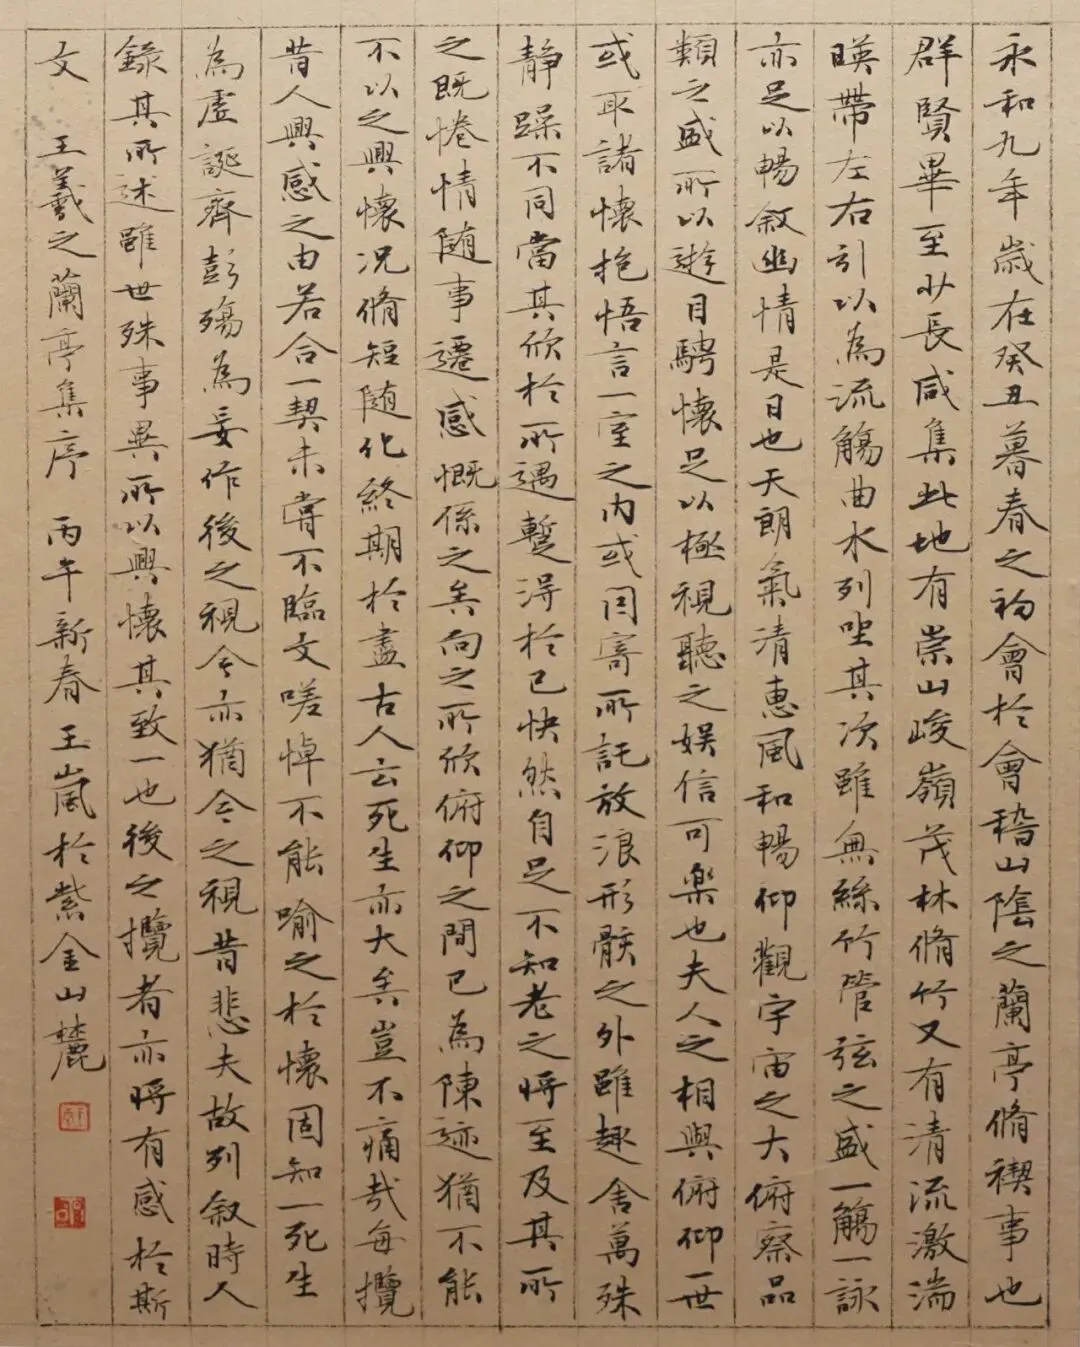 永和九年歲在癸丑暮春之初會於會稽山陰之蘭亭脩禊事也
群賢畢至少長咸集此地有崇山峻嶺茂林脩竹又有清流激湍
暎帶左右引以為流觴曲水列坐其次雖無絲竹管弦之盛一觴一詠
亦足以暢敘幽情是日也天朗氣清惠風和暢仰觀宇宙之大俯察品
類之盛所以遊目騁懷足以極視聽之娛信可樂也夫人之相與俯仰一世
或取諸懷抱悟言一室之內或因寄所託放浪形骸之外雖趣舍萬殊
靜躁不同當其欣於所遇蹔得於己快然自足不知老之將至及其所
之既惓情隨事遷感慨係之矣向之所欣俯仰之間已為陳迹猶不能
不以之興懷況脩短隨化終期於盡古人云死生亦大矣豈不痛哉每攬
昔人興感之由若合一契未嘗不臨文嗟悼不能喻之於懷固知一死生
為虛誕齊彭殤為妄作後之視今亦猶今之視昔悲夫故列敘時人
錄其所述雖世殊事異所以興懷其致一也後之攬者亦將有感於斯
文 王羲之蘭亭集序 丙午新春王嵐於紫金山麓